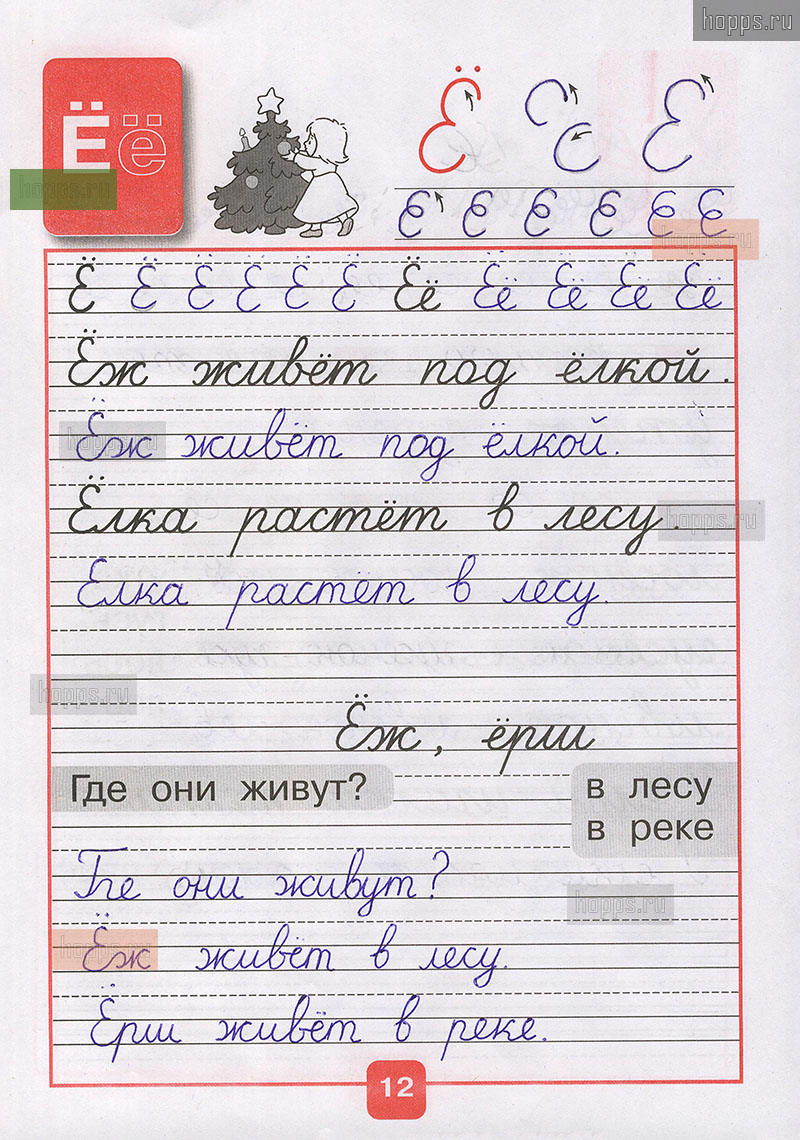 hopps.ru
Ё ё
hopps.ru
Ё Е
Е Е Е Е Е Е
hopps.ru
Ё Ё Ё Ё Ё Ё Ёё Ёё Ёё Ёё Ёё
Ёж живёт под ёлкой.
hopps.ru
Ёж живёт под ёлкой.
Ёлка растёт в лесу.
hopps.ru
Елка растёт в лесу.
hopps.ru
Ёж, ёрш
Где они живут?
в лесу
в реке
Где они живут?
hopps.ru
Ёж живёт в лесу.
hopps.ru
Ёрш живёт в реке.
12